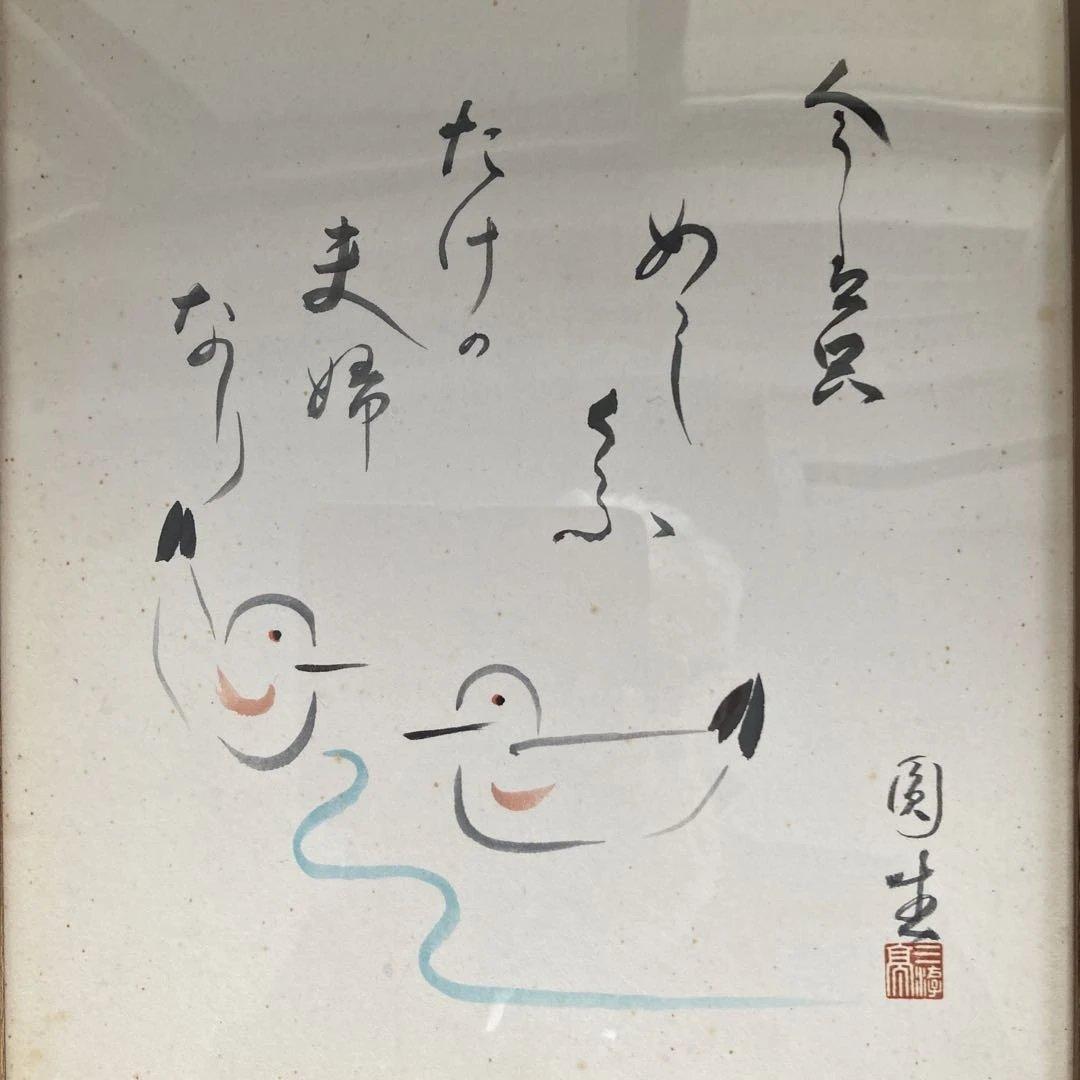 今は只
めし
くふ
たけの
夫婦
なり
圓生